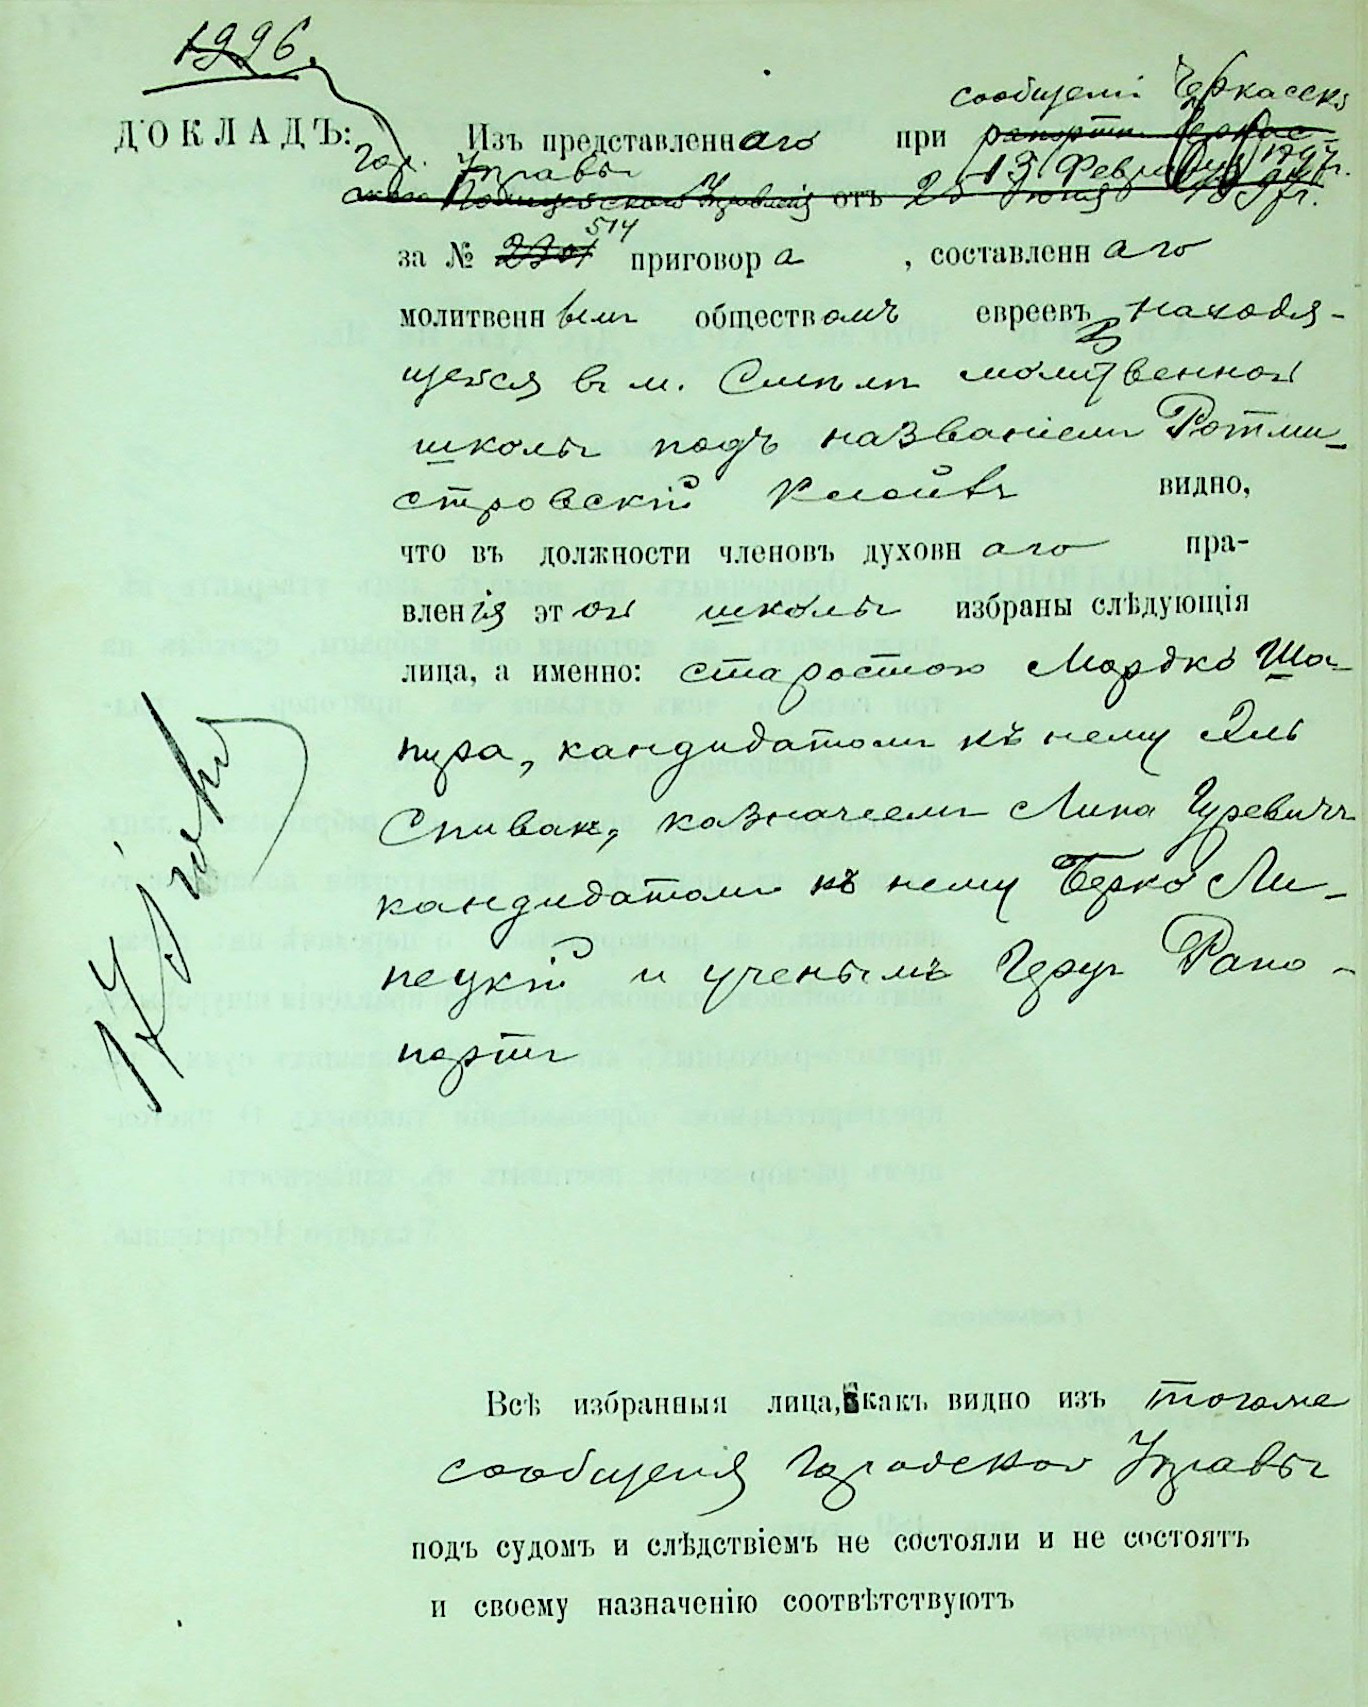 1996.
сообщеніи Черкасск.
ДОКЛАДЪ: Изъ представленнаго при рапортѣ Черкас-
Гор. Управы 13 Февраля 1897 г.
скаго Полицейскаго Управленія отъ 25 Іюня 189 г.
514
за № 2201 приговора , составленнаго
молитвеннымъ обществомъ евреевъ находя-
щейся въ м. Смѣлѣ молитвенной
школы подъ названіемъ Ротми-
стровскій Клойзъ видно,
что въ должности членовъ духовнаго пра-
вленія этой школы избраны слѣдующія
лица, а именно: старостою Мордко Ша-
пира, кандидатомъ къ нему Эль
Спивак, казначеемъ Липа Гуревичъ
кандидатомъ къ нему Берко Ли-
пецкій и ученымъ Герш Рапо-
портъ
Всѣ избранныя лица, какъ видно изъ того же
сообщенія Городской Управы
подъ судомъ и слѣдствіемъ не состояли и не состоятъ
и своему назначенію соотвѣтствуютъ